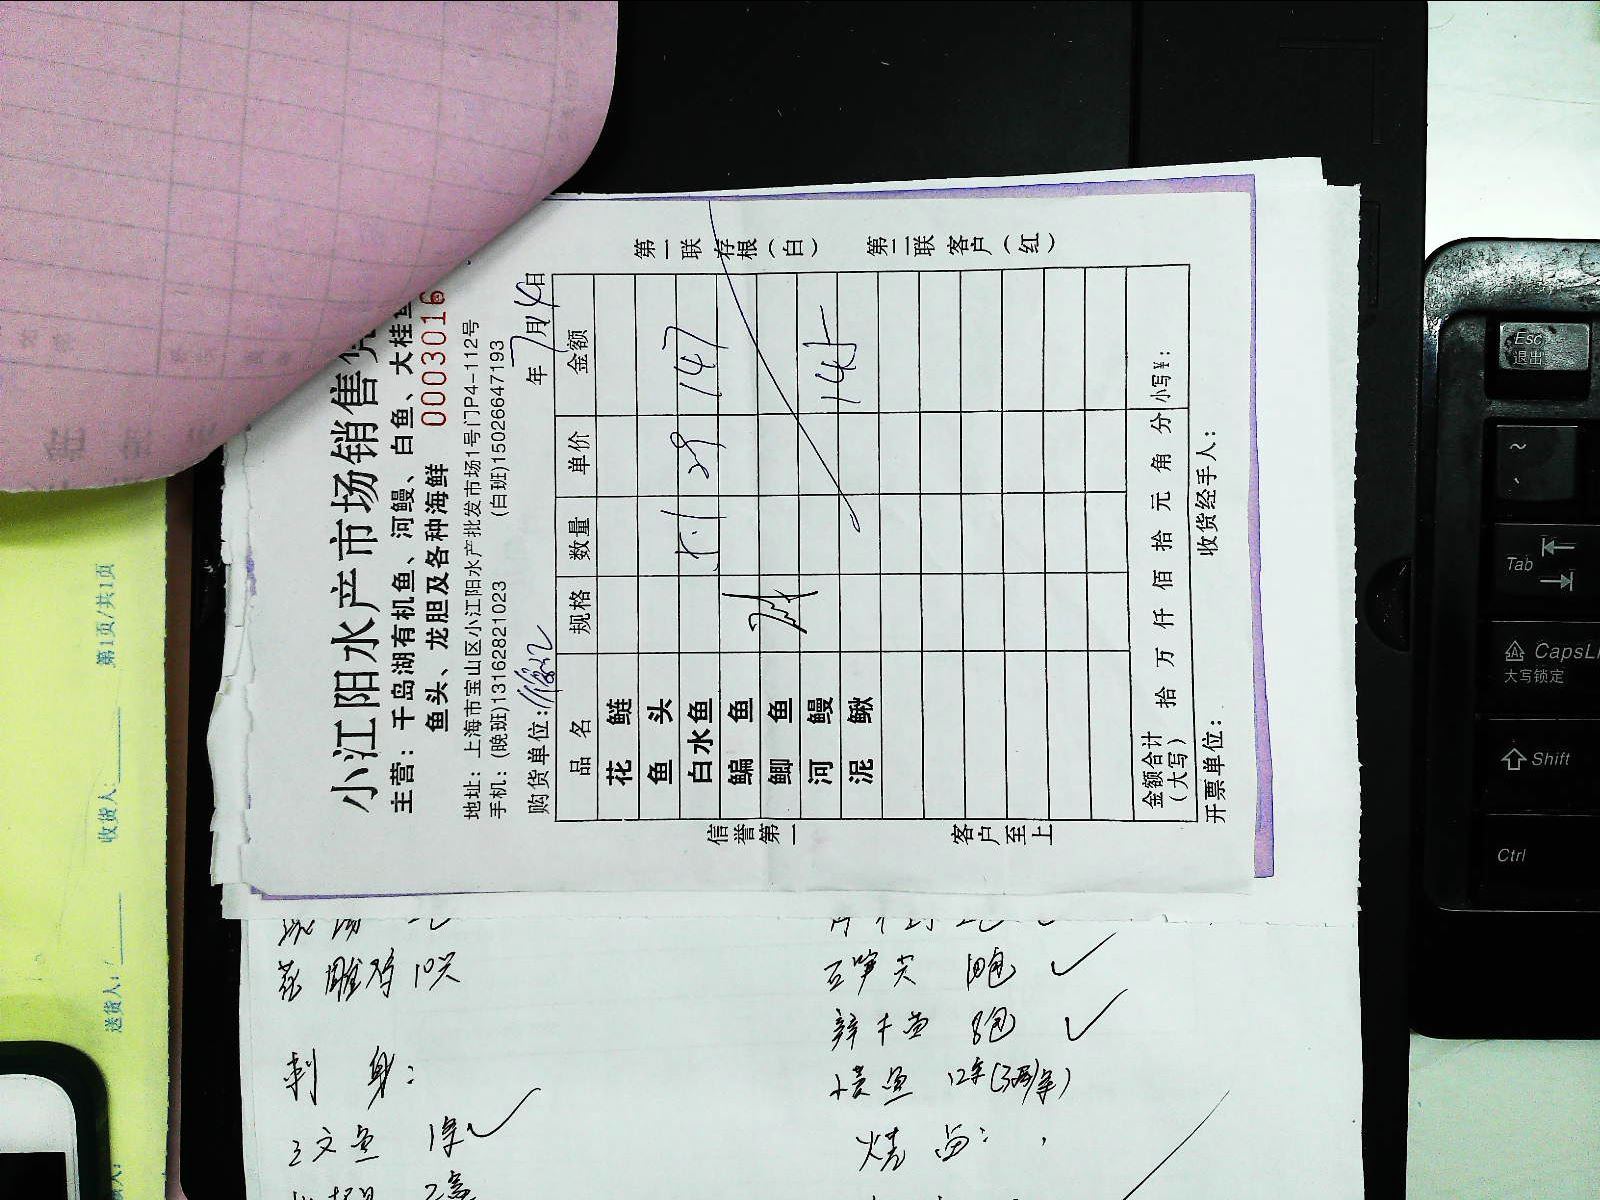 小江阳水产市场销售
主营：千岛湖有机鱼、河鳗、白鱼、大桂
鱼头、龙胆及各种海鲜
0003016
地址：上海市宝山区小江阳水产批发市场1号门P4-112号
手机：(晚班)13162821023 (白班)15026647193
购货单位： 年7月14日
品名 规格 数量 单价 金额
花鲢
鱼头
白水鱼 5.1 29 147
鳊鱼
鲫鱼
河鳗 145
泥鳅
金额合计（大写） 拾 万 仟 佰 拾 元 角 分 小写¥：
开票单位： 收货经手人：
信誉第一 客户至上
第一联 存根（白） 第二联 客户（红）
第1页/共1页
收货人：
送货人：
花雕鸡 10只
刺身：
三文鱼 1条
豆笋尖 10包
8包
12条
Esc
退出
~
Tab
CapsL
大写锁定
Shift
Ctrl